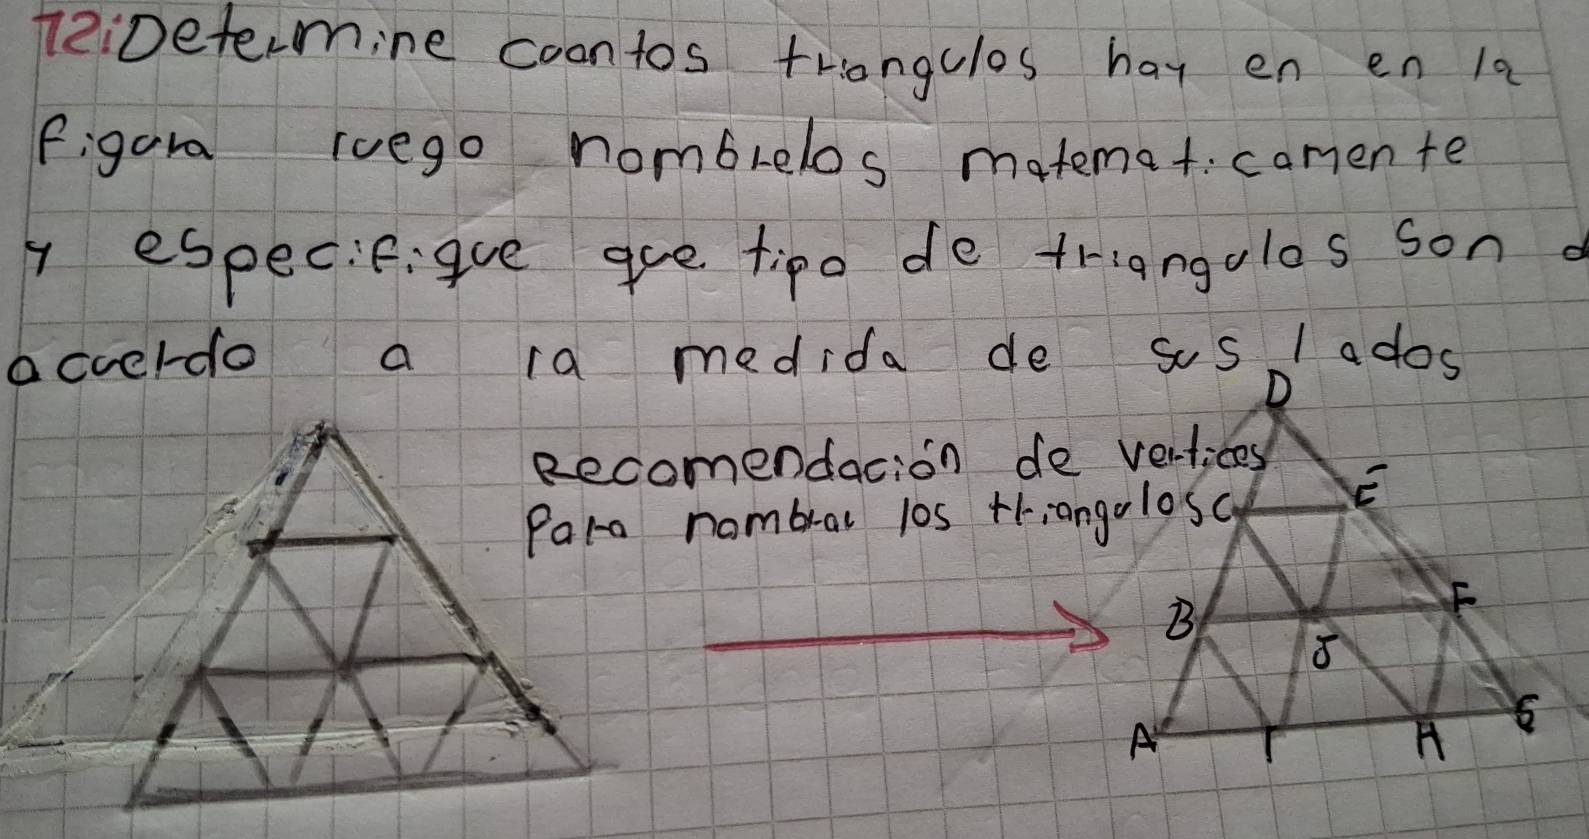 12:Determine coantos triangulos hay en en la
figura luego nombrelos matematicamente
y especifique que tipo de triangulos son d
acuerdo a la medida de sus lados
Recomendación de vertices
Para nombrar los triangulos
D
E
C
B
F
J
A
I
H
G